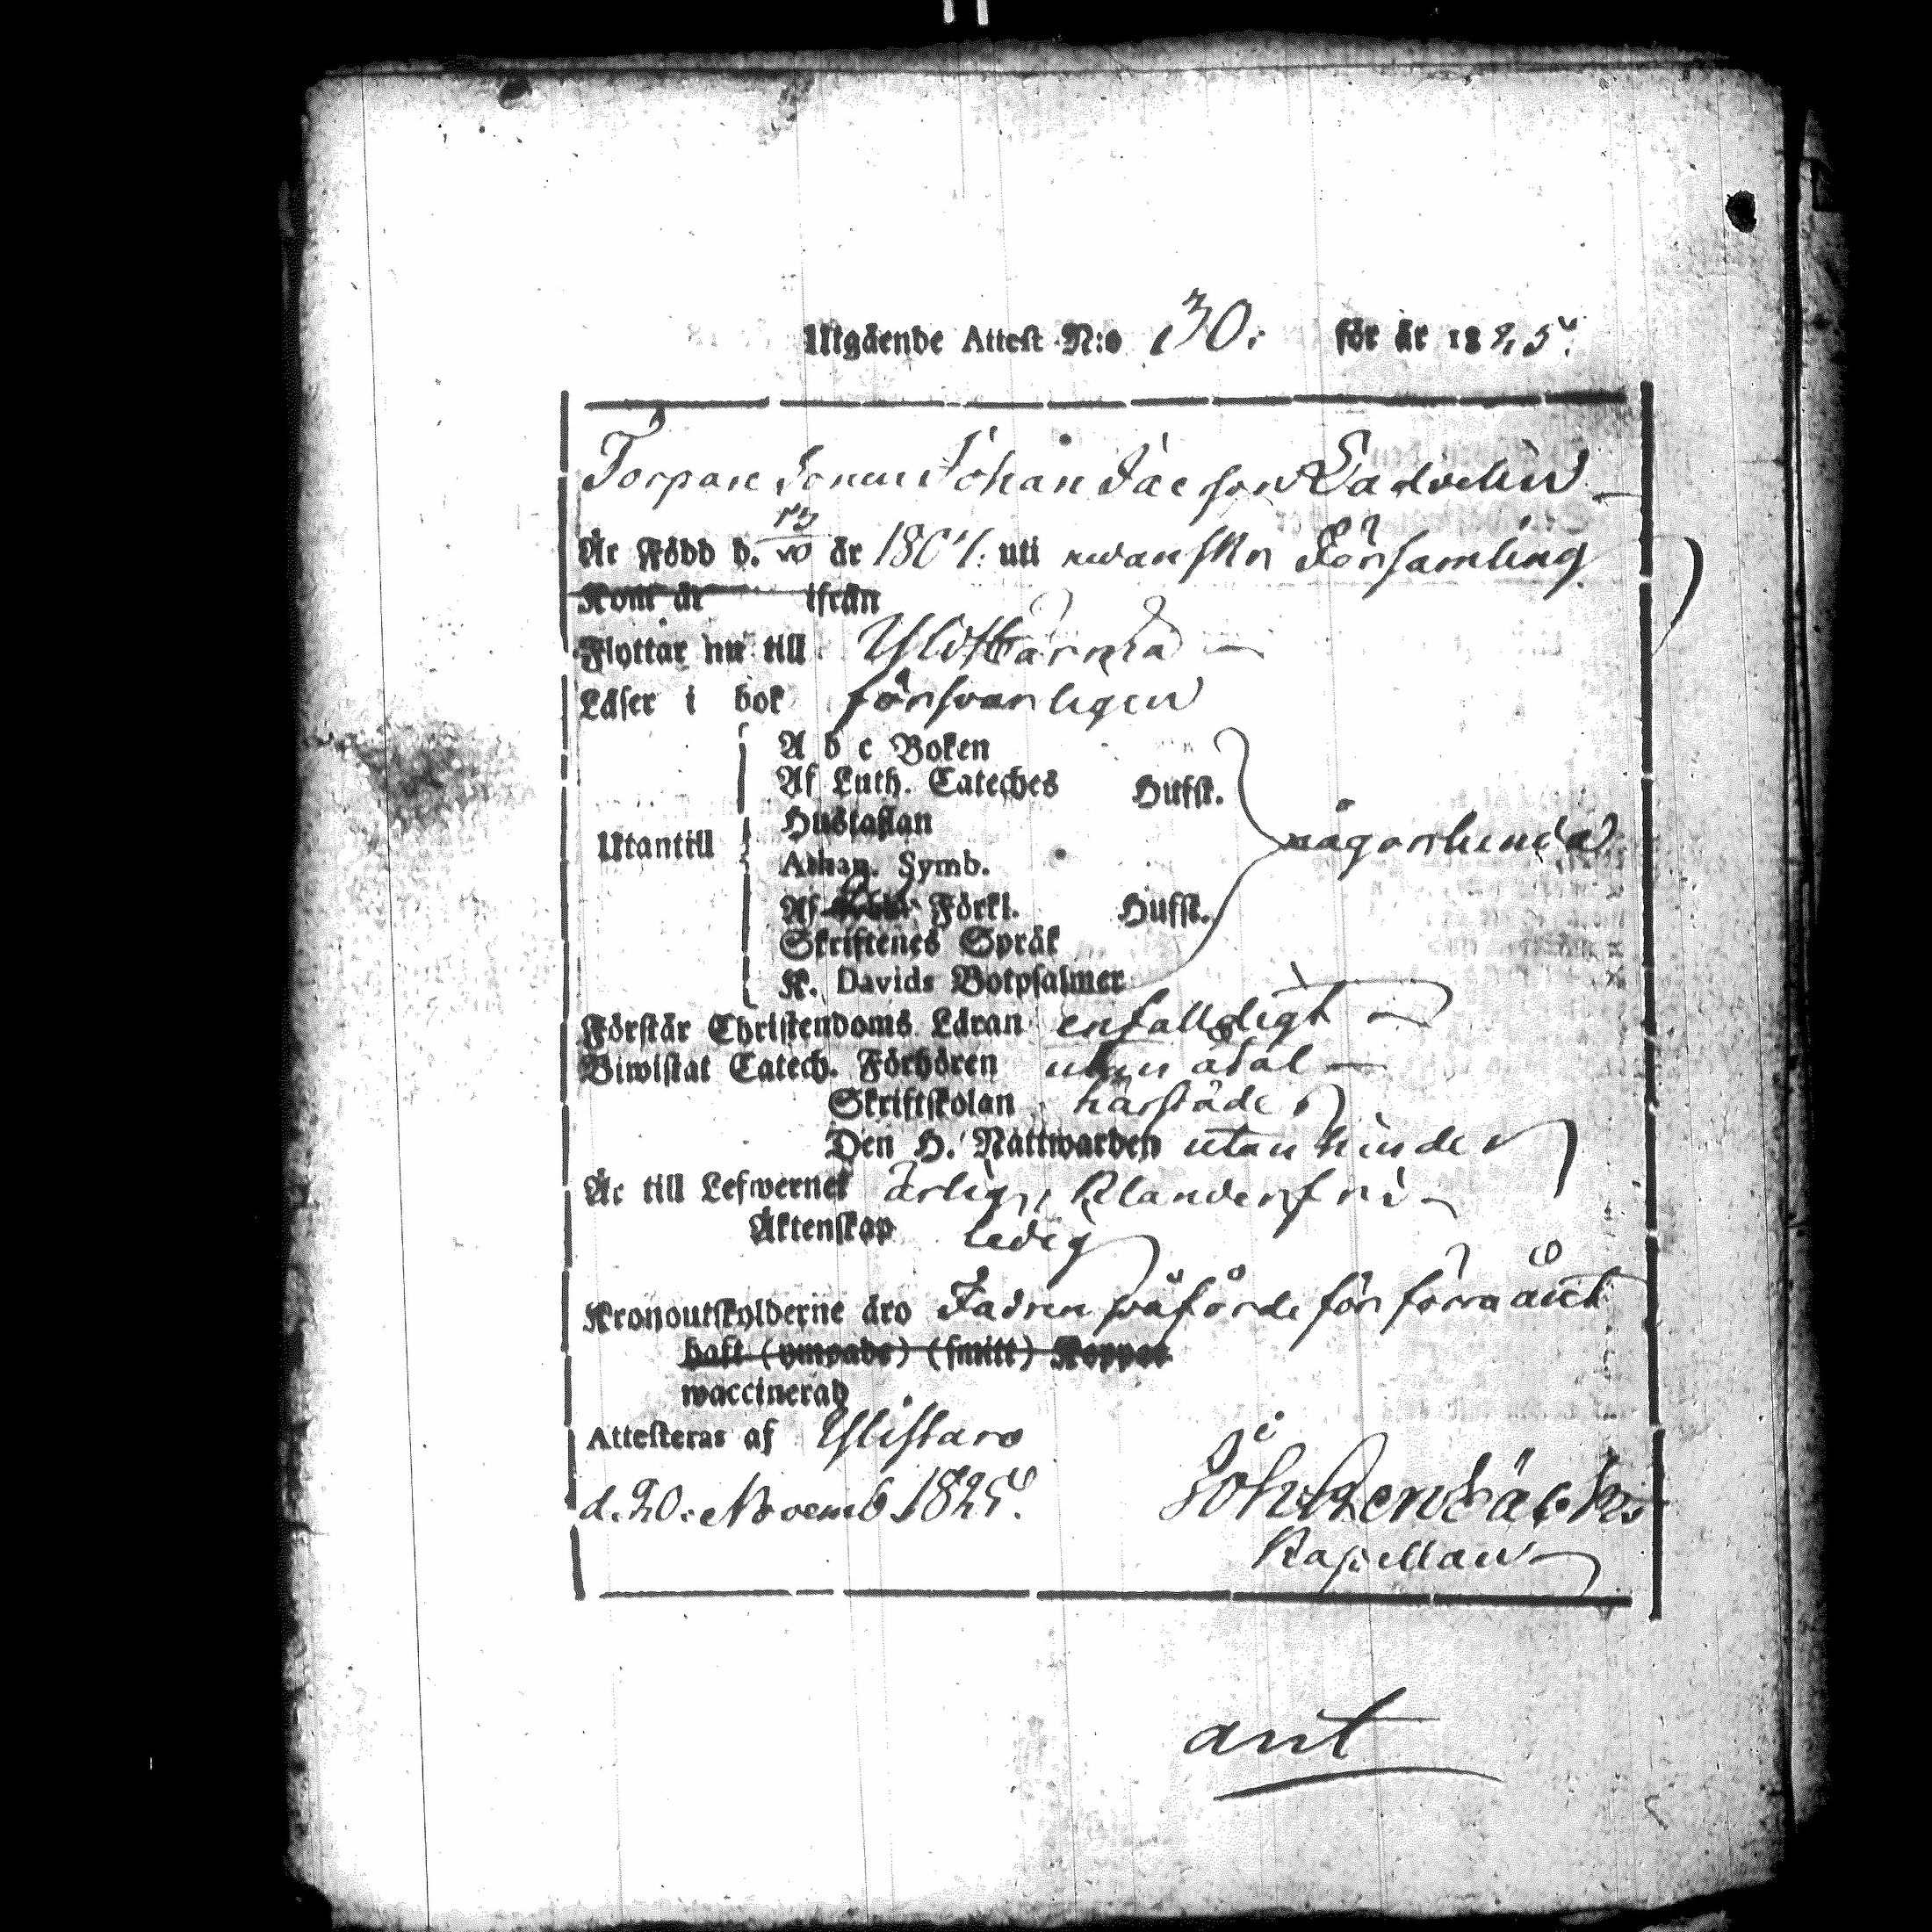 Utgående Attest N:o 30. för år 1825.
Torpare Sonen Johan Jacsson
Är Född d. år 1804. uti Församling
Kom år ifrån
Flyttar nu till Ylihärmä
Läser i bok försvarligen
A b c Boken
Af Luth. Cateches Hufst.
Hustaflan
Utantill någorlunda
Athan. Symb.
Af Förkl. Hufst.
Skriftenes Språk
K. Davids Botpsalmer
Förstår Christendoms Läran enfalldigt
Biwistat Catech. Förhören utan
Skriftskolan härstädes
Den H. Nattwarden utan hinder
Är till Lefwernet ärlig, klanderfri
Äktenskap ledig
Kronoutskylderne äro Fadren påförde för förra året
haft (ympade) (smitt) Koppor
waccinerad
Attesteras af Ylistaro
d. 20. Novemb. 1825. Joh:
Kapellan
ant